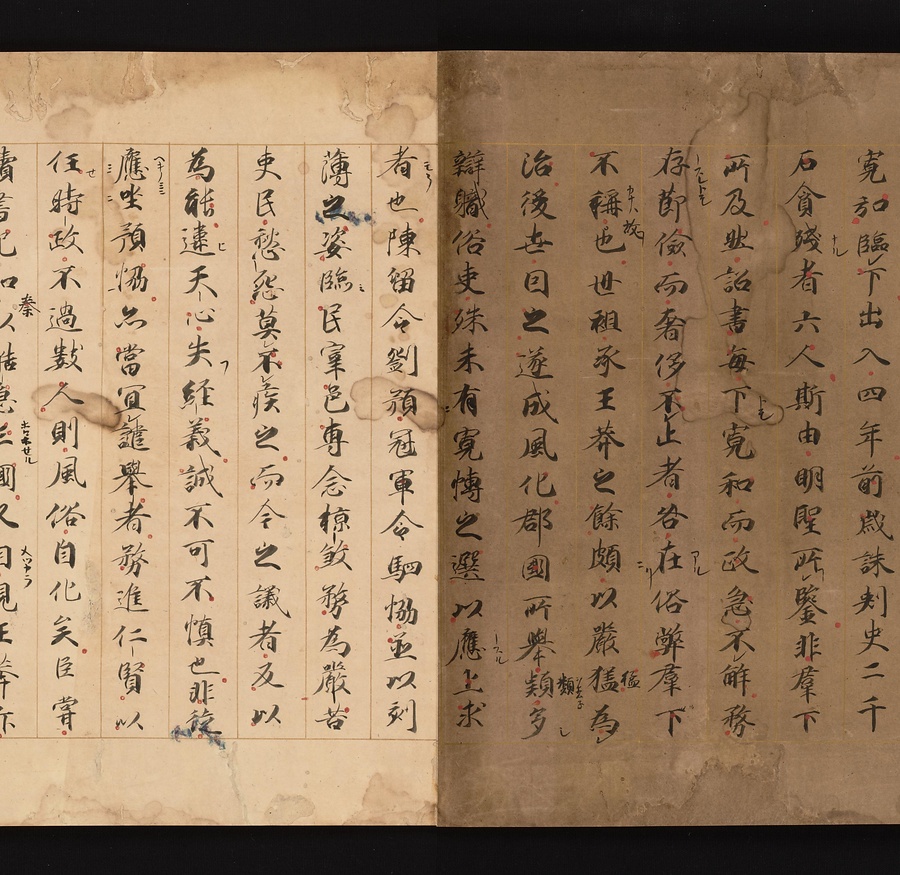 寛和臨下出入四年前歳誅刺史二千
石貪殘者六人斯由明聖所鑒非羣下
所及然詔書每下寛和而政急不解務
存莭儉而奢侈不止者咎在俗弊羣下
不稱也世祖承王莽之餘頗以嚴猛為
治後世因之遂成風化郡國所舉類多
辯職俗吏殊未有寛愽之選以應上求
者也陳留令劉預冠軍令駟恊並以刻
薄之姿臨民宰邑專念掠㪇務為嚴苦
吏民愁怨莫不疾之而今之議者反以
為能違天心失經義誠不可不慎也非徒
應坐預恊亦當宜譴舉者務進仁賢以
任時政不過數人則風俗自化矣臣嘗
讀書記知以酷急亡國又目見王莽亦
秦
猛
類